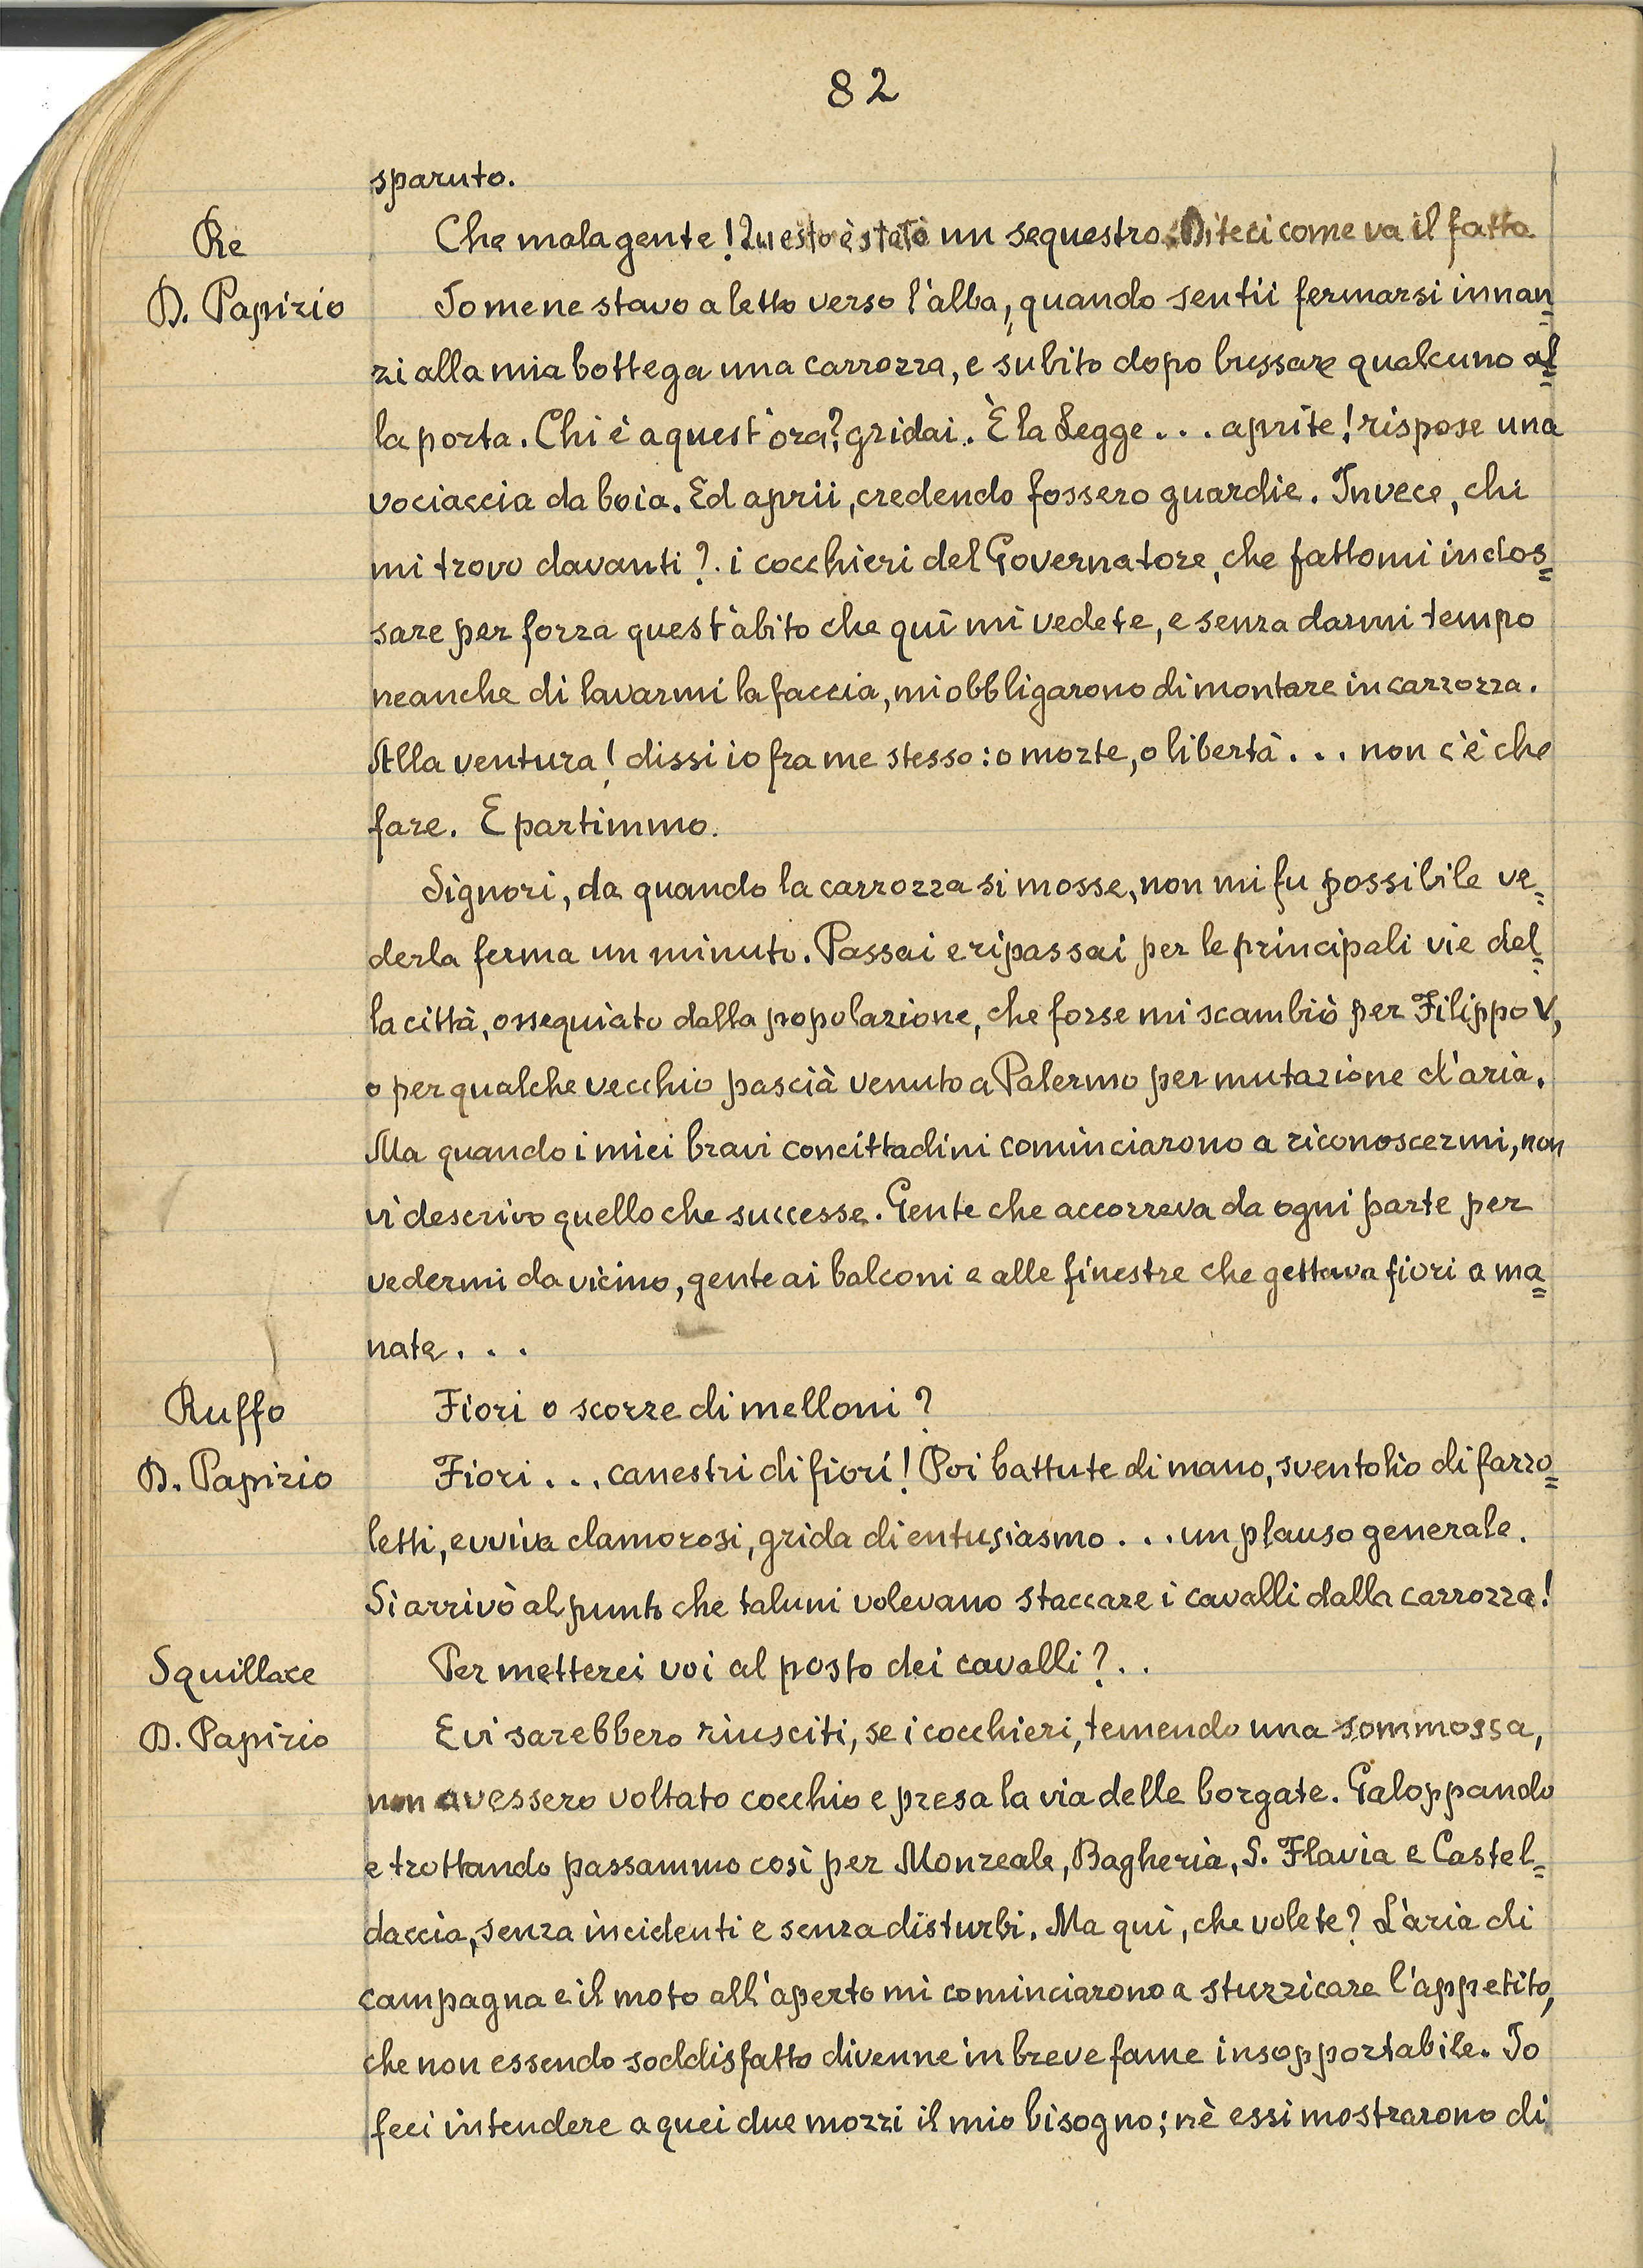 82
sparuto.
Re Che mala gente! Questo è stato un sequestro. Diteci come va il fatto.
D. Papirio Io me ne stavo a letto verso l'alba, quando sentii fermarsi innan=
zi alla mia bottega una carrozza, e subito dopo bussare qualcuno al=
la porta. Chi è a quest'ora? gridai. È la Legge... aprite! rispose una
vociaccia da boia. Ed aprii, credendo fossero guardie. Invece, chi
mi trovo davanti?. i cocchieri del Governatore, che fattomi indos=
sare per forza quest'abito che quì mi vedete, e senza darmi tempo
neanche di lavarmi la faccia, mi obbligarono di montare in carrozza.
Alla ventura! dissi io fra me stesso: o morte, o libertà... non c'è che
fare. E partimmo.
Signori, da quando la carrozza si mosse, non mi fu possibile ve=
derla ferma un minuto. Passai e ripassai per le principali vie del=
la città, ossequiato dalla popolazione, che forse mi scambiò per Filippo V,
o per qualche vecchio pascià venuto a Palermo per mutazione d'aria.
Ma quando i miei bravi concittadini cominciarono a riconoscermi, non
vi descrivo quello che successe. Gente che accorreva da ogni parte per
vedermi da vicino, gente ai balconi e alle finestre che gettava fiori a ma=
nate...
Ruffo Fiori o scorze di melloni?
D. Papirio Fiori... canestri di fiori! Poi battute di mano, sventolio di fazzo=
letti, evviva clamorosi, grida di entusiasmo... un plauso generale.
Si arrivò al punto che taluni volevano staccare i cavalli dalla carrozza!
Squillace Per metterci voi al posto dei cavalli?..
D. Papirio E vi sarebbero riusciti, se i cocchieri, temendo una sommossa,
non avessero voltato cocchio e presa la via delle borgate. Galoppando
e trottando passammo così per Monreale, Bagheria, S. Flavia e Castel=
daccia, senza incidenti e senza disturbi. Ma qui, che volete? L'aria di
campagna e il moto all'aperto mi cominciarono a stuzzicare l'appetito,
che non essendo soddisfatto divenne in breve fame insopportabile. Io
feci intendere a quei due mozzi il mio bisogno; nè essi mostrarono di